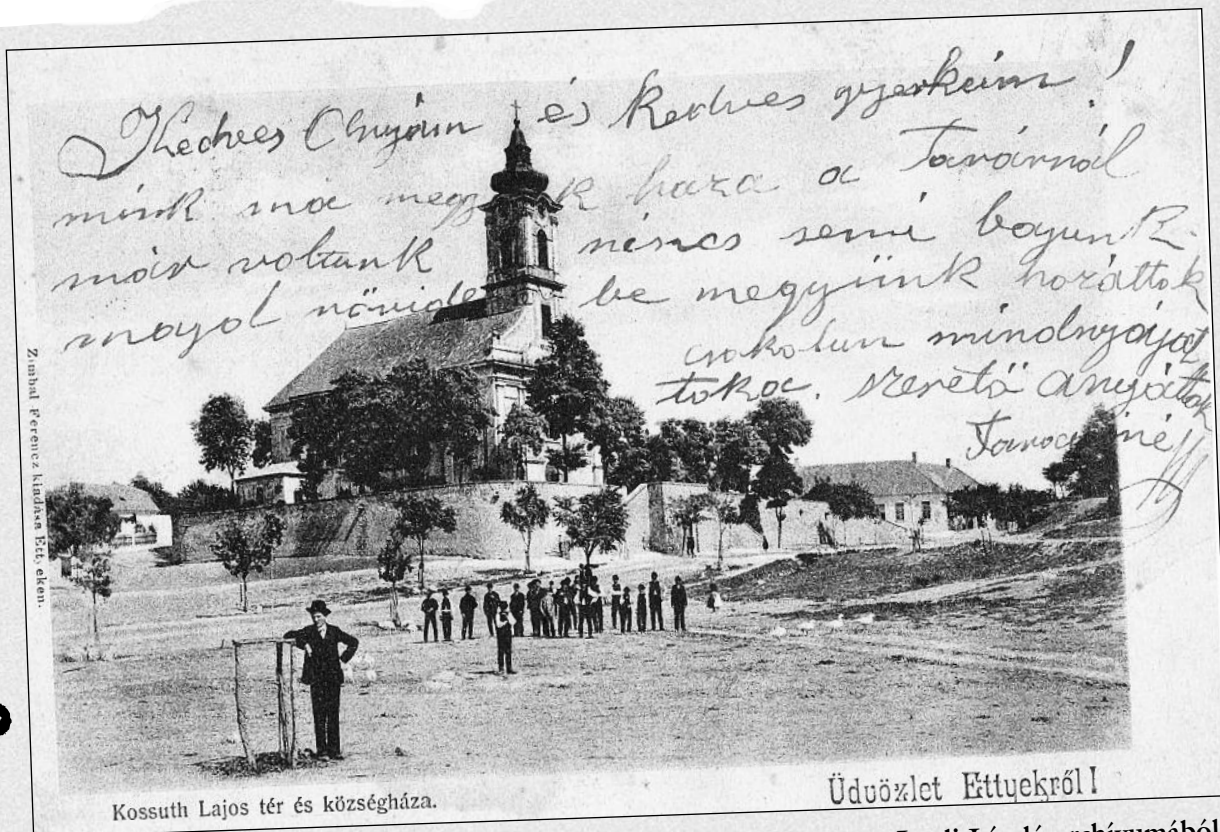 Kedves Anyám és kedves gyerkeim!
mink ma megyünk haza a Tanárnál
már voltunk nincs semi bajunk
majd rövide be megyünk hozáttok
csokolun mindnyáját
toka. szerető anyátok
Zimbal Ferencz kiadása Ettyeken.
Kossuth Lajos tér és községháza.
Üdvözlet Ettyekről!
László archívumából